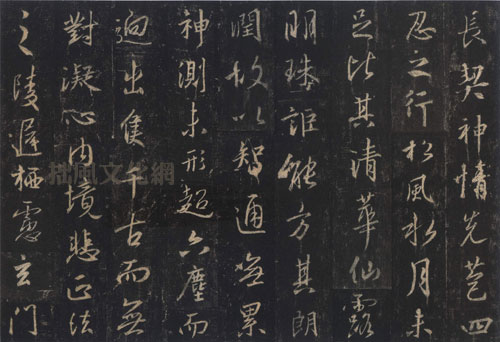 長契神情先苞四
忍之行松風水月未
足比其清華仙露
明珠詎能方其朗
潤故以智通無累
神測未形超六塵而
迥出隻千古而無
對凝心內境悲正法
之陵遲栖慮玄門
文化網